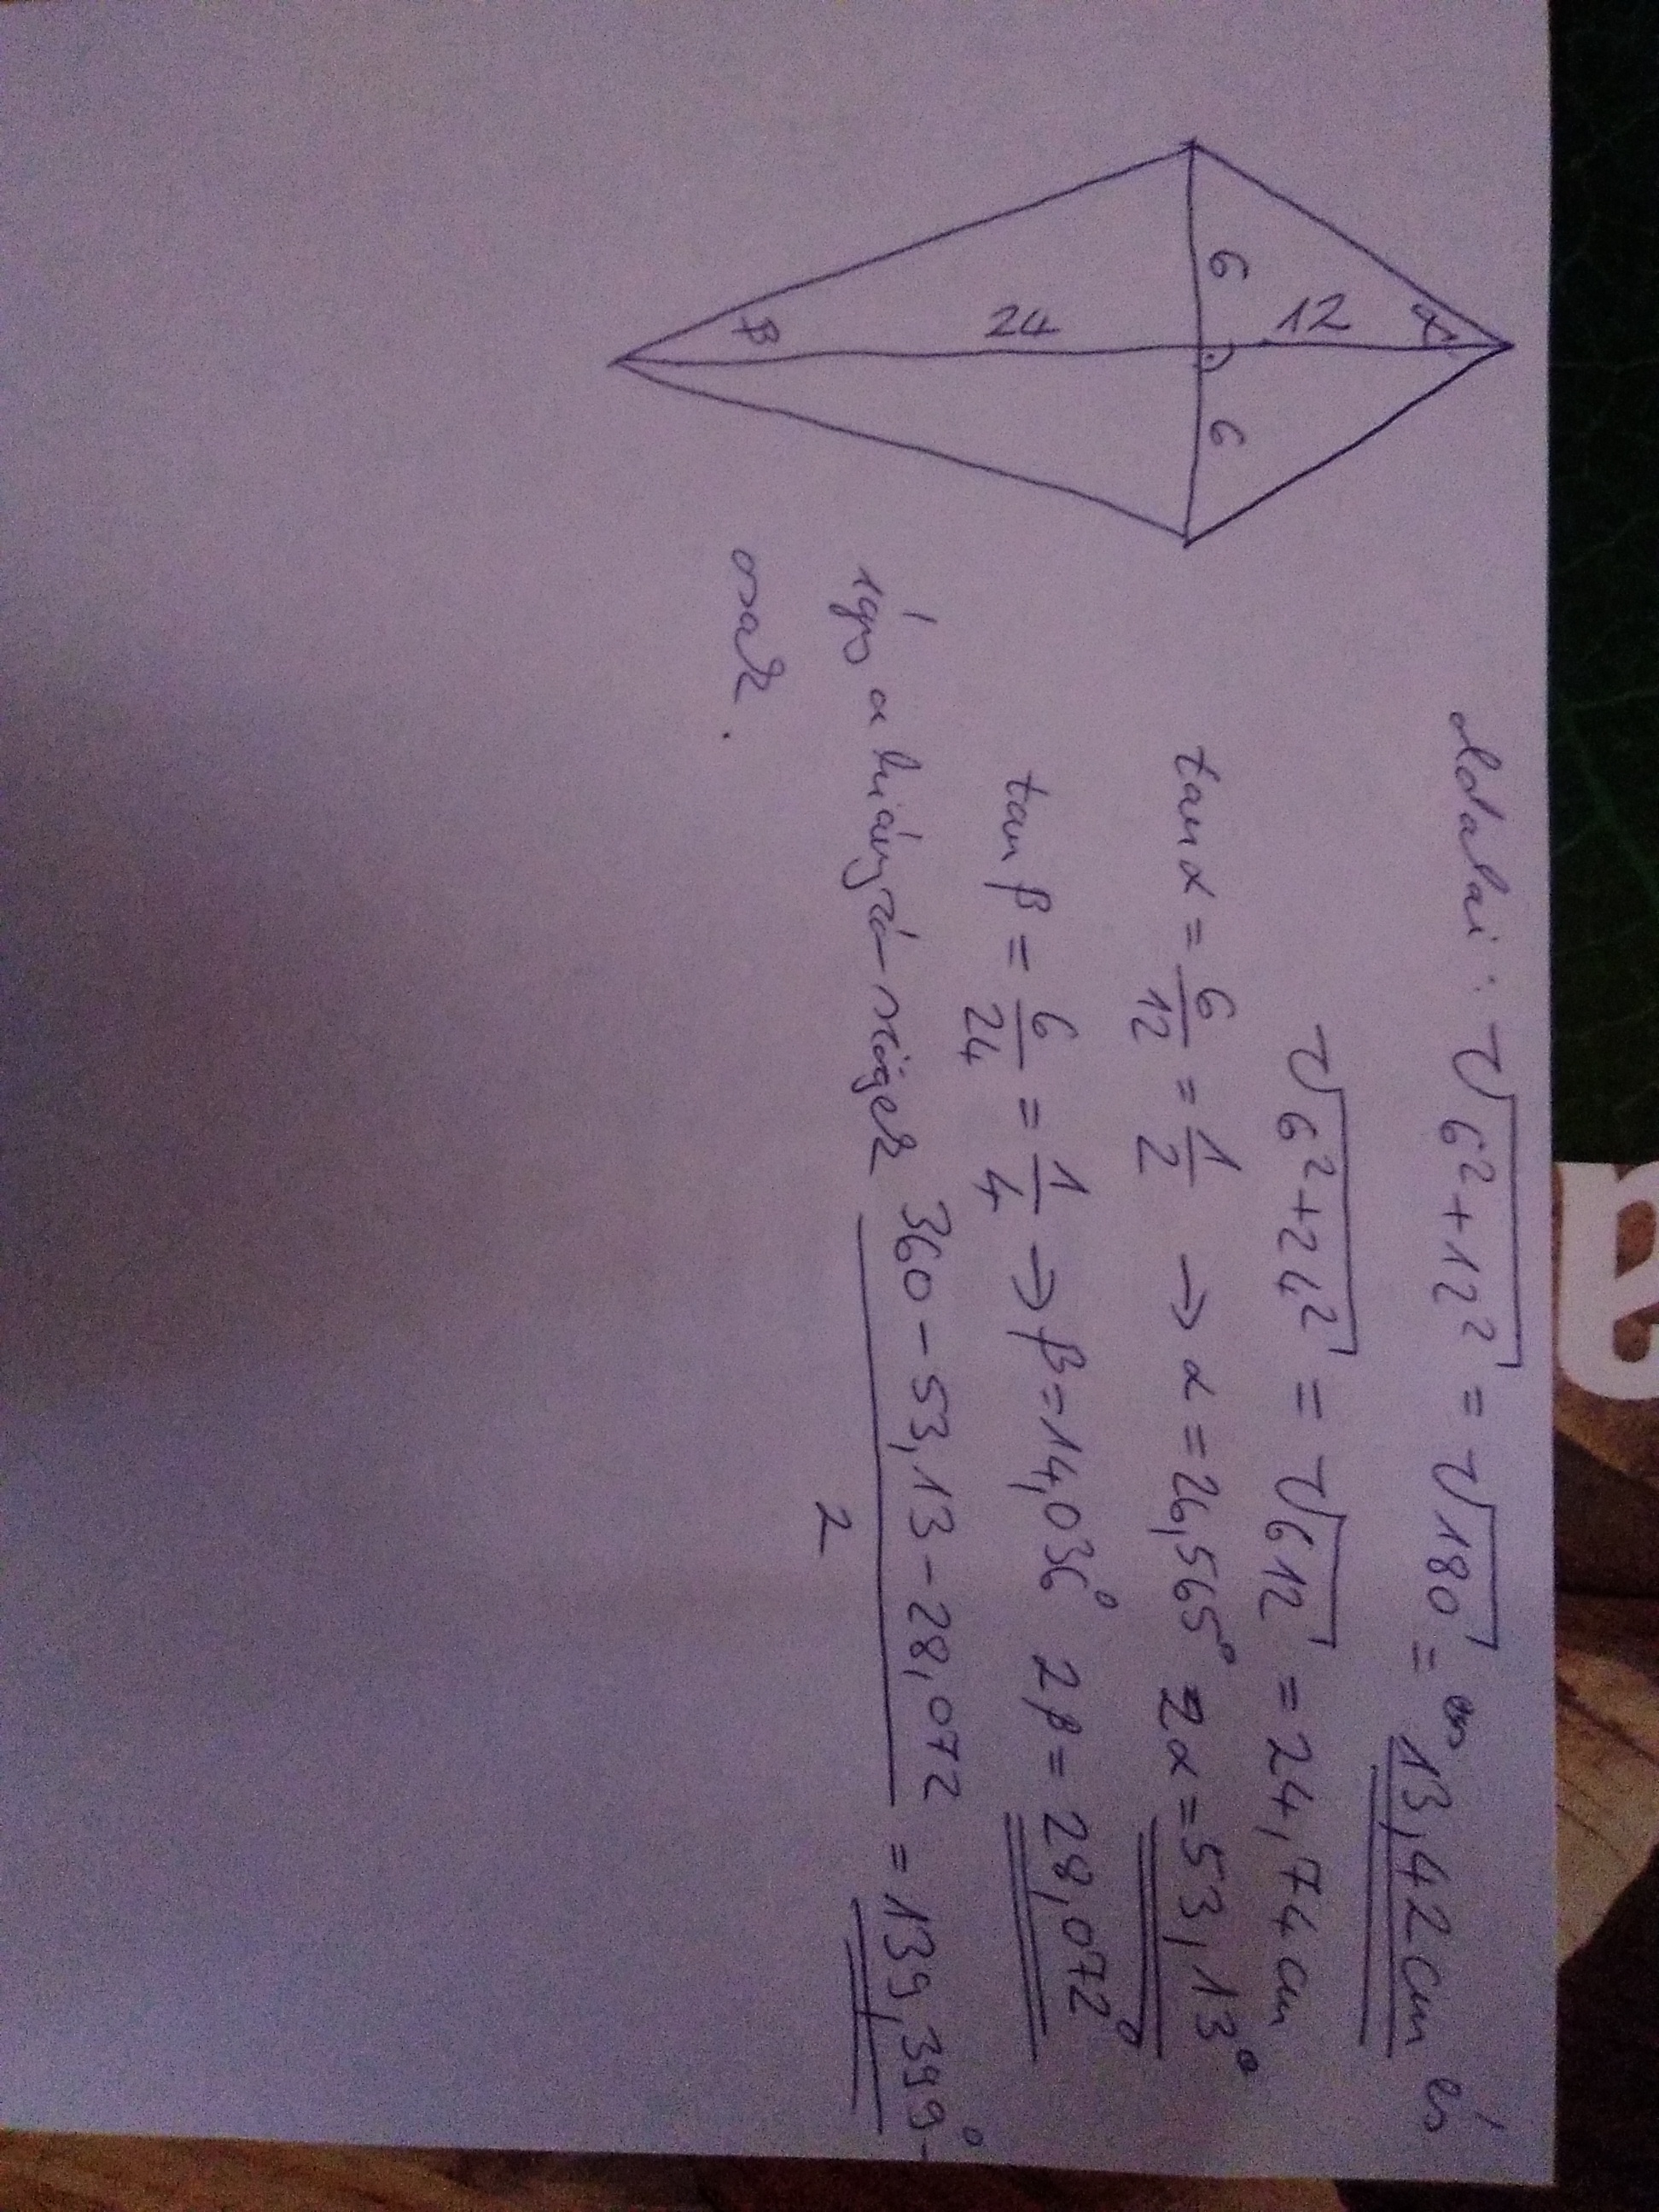 α
12
6
6
24
β
oldalai: √6²+12² = √180 = 13,42cm és
√6²+24² = √612 = 24,74cm
tan α = 6/12 = 1/2 → α = 26,565° 2α = 53,13°
tan β = 6/24 = 1/4 → β = 14,036° 2β = 28,072°
így a hiányzó szögek 360 - 53,13 - 28,072 / 2 = 139,399°-
osak.